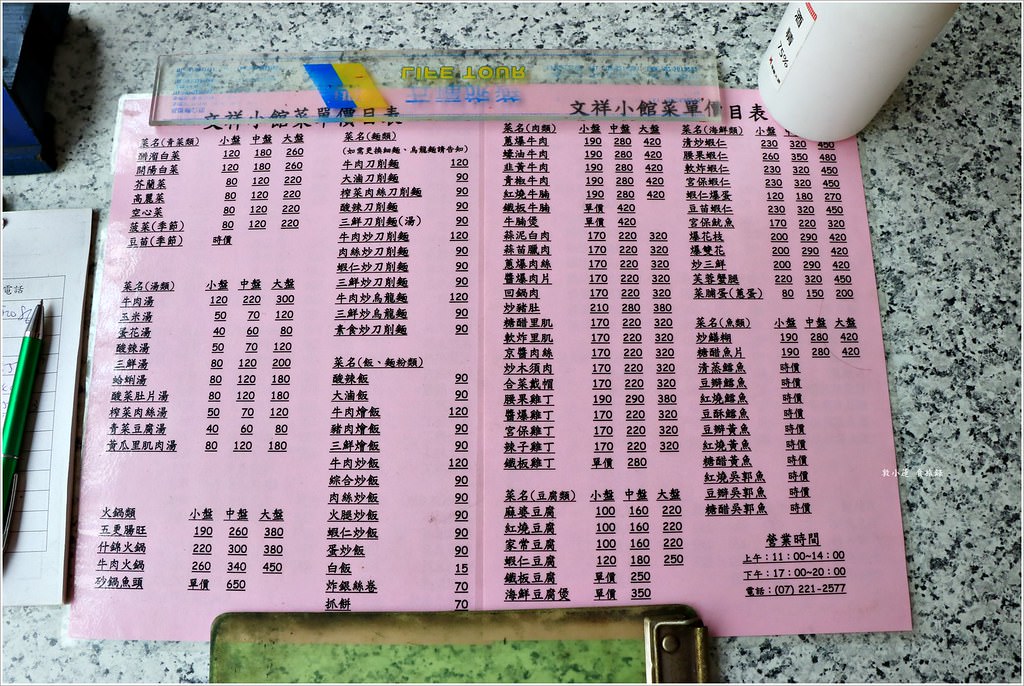 LIFE TOUR
文祥小館菜單價目表
菜名(青菜類) 小盤 中盤 大盤
開陽白菜 120 180 260
芥蘭菜 80 120 220
高麗菜 80 120 220
空心菜 80 120 220
菠菜(季節) 80 120 220
豆苗(季節) 時價
菜名(湯類) 小盤 中盤 大盤
牛肉湯 120 220 300
玉米湯 50 70 120
蛋花湯 40 60 80
酸辣湯 50 70 120
三鮮湯 80 120 200
蛤蜊湯 80 120 180
酸菜肚片湯 80 120 180
榨菜肉絲湯 50 70 120
青菜豆腐湯 40 60 80
黃瓜里肌肉湯 80 120 180
火鍋類 小盤 中盤 大盤
五更腸旺 190 260 380
什錦火鍋 220 300 380
牛肉火鍋 260 340 450
砂鍋魚頭 單價 650
菜名(麵類)
(如需更換細麵、烏龍麵請告知)
牛肉刀削麵 120
大滷刀削麵 90
榨菜肉絲刀削麵 90
酸辣刀削麵 90
三鮮刀削麵(湯) 90
牛肉炒刀削麵 120
肉絲炒刀削麵 90
蝦仁炒刀削麵 90
三鮮炒刀削麵 90
牛肉炒烏龍麵 120
三鮮炒烏龍麵 90
素食炒刀削麵 90
菜名(飯、麵粉類)
酸辣飯 90
大滷飯 90
牛肉燴飯 120
豬肉燴飯 90
三鮮燴飯 90
牛肉炒飯 120
綜合炒飯 90
肉絲炒飯 90
火腿炒飯 90
蝦仁炒飯 90
蛋炒飯 90
白飯 15
炸銀絲卷 70
抓餅 70
文祥小館菜單價目表
菜名(肉類) 小盤 中盤 大盤
蔥爆牛肉 190 280 420
蠔油牛肉 190 280 420
韭黃牛肉 190 280 420
青椒牛肉 190 280 420
紅燒牛腩 190 280 420
鐵板牛腩 單價 420
牛腩煲 單價 420
蒜泥白肉 170 220 320
蒜苗臘肉 170 220 320
蔥爆肉絲 170 220 320
醬爆肉片 170 220 320
回鍋肉 170 220 320
炒豬肚 210 280 380
糖醋里肌 170 220 320
軟炸里肌 170 220 320
京醬肉絲 170 220 320
炒木須肉 170 220 320
合菜戴帽 170 220 320
腰果雞丁 190 290 380
醬爆雞丁 170 220 320
宮保雞丁 170 220 320
辣子雞丁 170 220 320
鐵板雞丁 單價 280
菜名(豆腐類) 小盤 中盤 大盤
麻婆豆腐 100 160 220
紅燒豆腐 100 160 220
家常豆腐 100 160 220
蝦仁豆腐 120 180 250
鐵板豆腐 單價 250
海鮮豆腐煲 單價 350
菜名(海鮮類) 小盤
清炒蝦仁 230 320 450
腰果蝦仁 260 350 480
軟炸蝦仁 230 320 450
宮保蝦仁 230 320 450
蝦仁爆蛋 120 180 270
豆苗蝦仁 230 320 450
宮保魷魚 170 220 320
爆花枝 200 290 420
爆雙花 200 290 420
炒三鮮 200 290 420
芙蓉蟹腿 220 320 450
菜脯蛋(蔥蛋) 80 150 200
菜名(魚類) 小盤 中盤 大盤
炒鱔糊 190 280 420
糖醋魚片 190 280 420
清蒸鱈魚 時價
豆瓣鱈魚 時價
紅燒鱈魚 時價
豆酥鱈魚 時價
豆瓣黃魚 時價
紅燒黃魚 時價
糖醋黃魚 時價
紅燒吳郭魚 時價
豆瓣吳郭魚 時價
糖醋吳郭魚 時價
營業時間
上午：11：00~14：00
下午：17：00~20：00
電話：(07) 221-2577
酒精 75%
電話